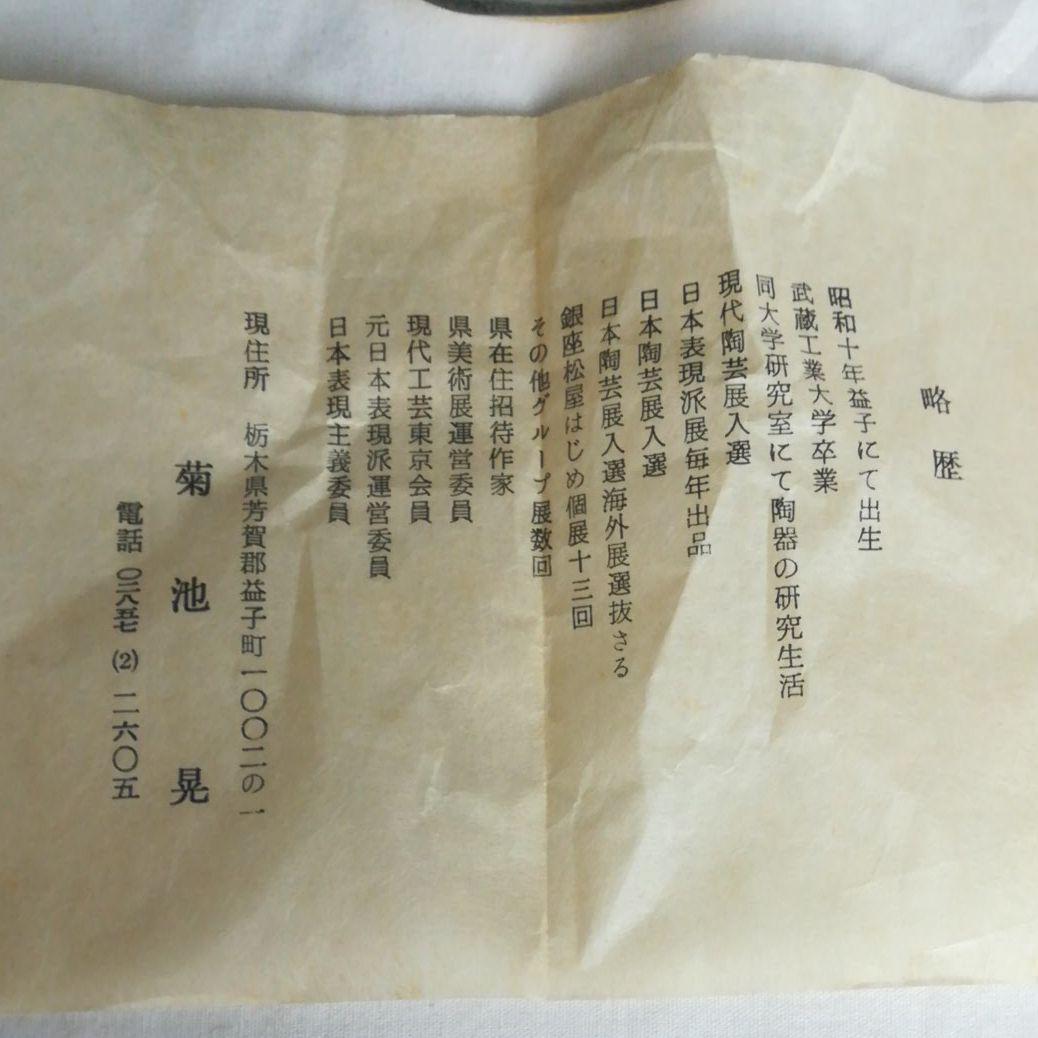 略歴
昭和十年益子にて出生
武蔵工業大学卒業
同大学研究室にて陶器の研究生活
現代陶芸展入選
日本表現派展毎年出品
日本陶芸展入選
日本陶芸展入選海外展選抜さる
銀座松屋はじめ個展十三回
その他グループ展数回
県在住招待作家
県美術展運営委員
現代工芸東京会員
元日本表現派運営委員
日本表現主義委員
現住所 栃木県芳賀郡益子町一〇〇二の一
菊池晃
電話 〇二八五七(2)二六〇五